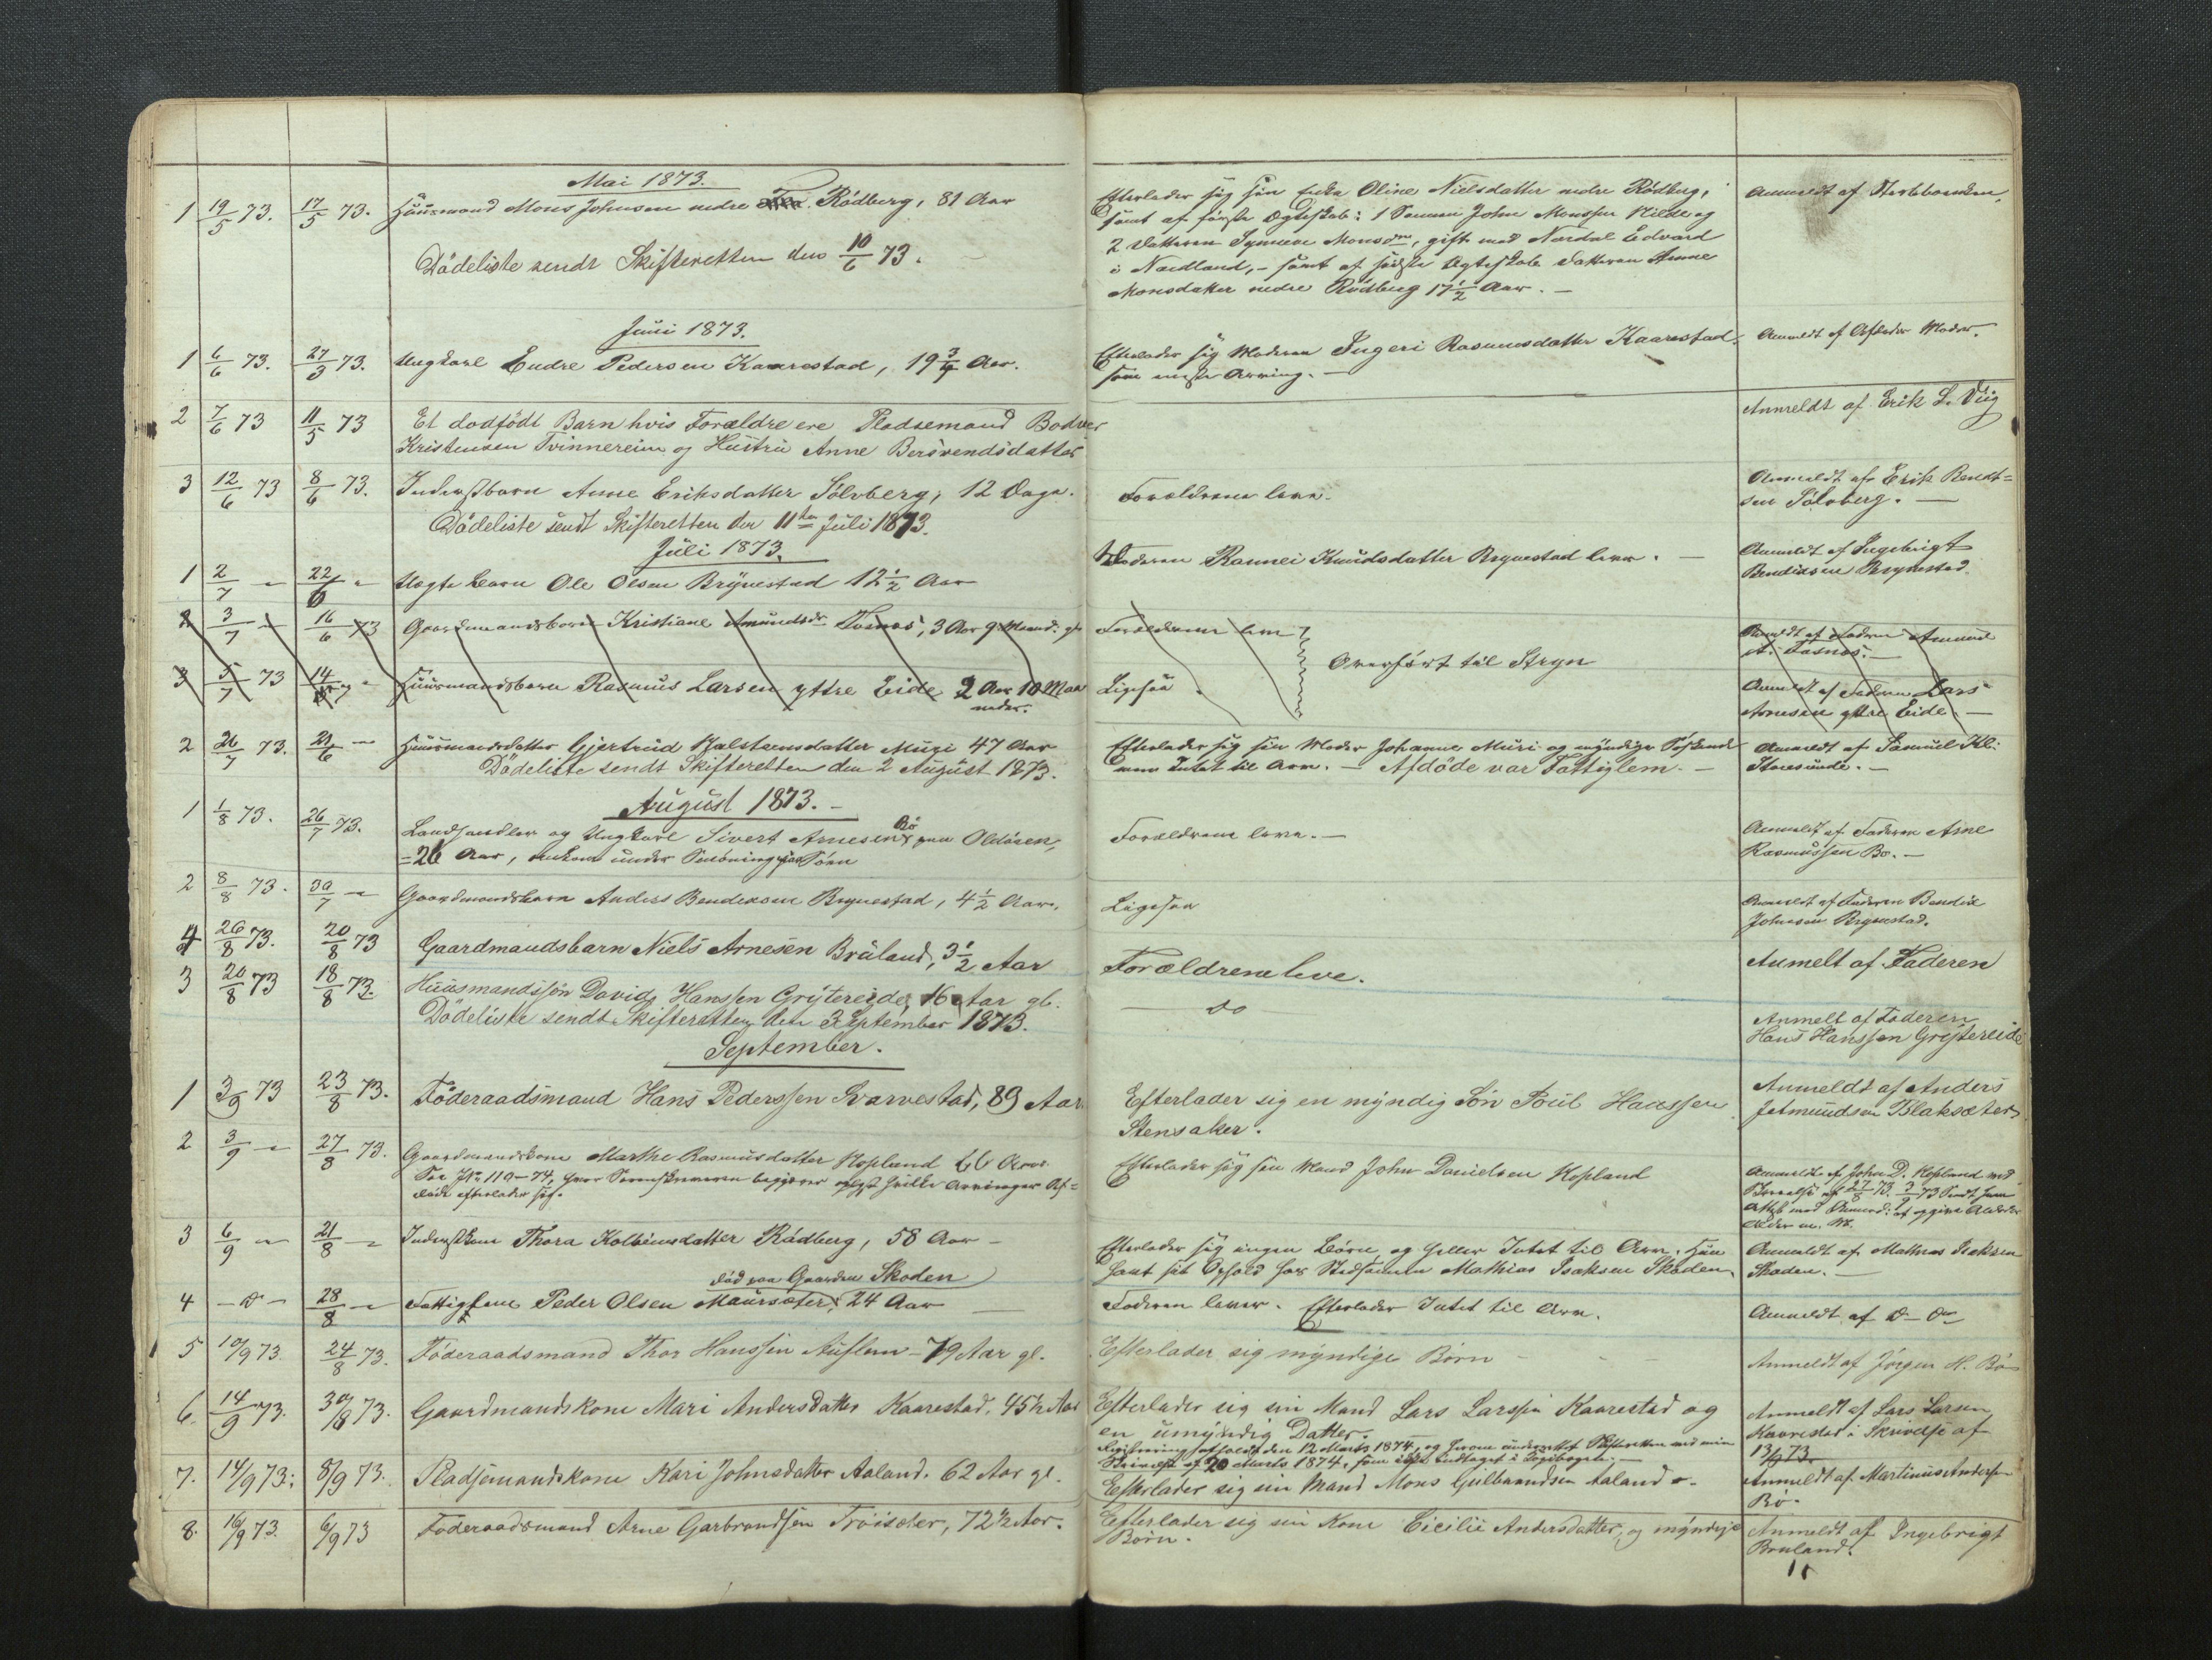 Mai 1873.
1 19/5 73. 17/5 73. Huusmand Mons Johnsen nedre Rödberg, 81 Aar
Efterlader sig sin Enke Oline Nielsdatter nedre Rödberg,
samt af förste Ægteskab: 1 Sønnen John Monssen Hilde og
2 Datteren Synneve Monsdr, gift med Nordal Edvard
i Nordland, - samt af sidste Ægteskab Datteren Anne
Monsdatter nedre Rödberg 17 1/2 Aar. -
Anmeldt af Sterbboenken.
Dödeliste sendt Skifteretten den 10/6 73.
Juni 1873.
1 6/6 73. 27/3 73. Ungkarl Endre Pedersen Kaarestad, 19 3/4 Aar.
Efterlader sig Moderen Ingeri Rasmusdatter Kaarestad
som eneste Arving. -
Anmeldt af Afdødes Moder.
2 7/6 73 11/5 73 Et dodfödt Barn hvis Forældre ere Pladsemand Bodver
Kristensen Tvinnereim og Hustru Anne Bersvendsdatter
Anmeldt af Erik L. Viig
3 12/6 73 8/6 73. Inderstbarn Anne Eriksdatter Sölvberg, 12 Dage.
Forældrene leve.
Anmeldt af Erik Bendt=
sen Sölvberg. -
Dödeliste sendt Skifteretten den 11te Juli 1873.
Juli 1873.
1 2/7 - 22/6 - Uægte Barn Ole Olsen Bryneestad 12 1/2 Aar
Moderen Rannei Knudsdatter Brynestad lever. -
Anmeldt af Ingebrigt
Bendixsen Brynestad.
2 3/7 - 16/6 73 Gaardmandsbarn Kristiane Amundsdr Tosnæs, 3 Aar 9 Maand. gl.
Forældrene leve
Anmeldt af Faderen Amund
Overfört til Stryn
3 5/7 73 14/ - Huusmandsbarn Rasmus Larsen yttre Eide 2 Aar 10 Maa
neder.
Ligesaa
Anmeldt af Faderen Lars
Arnesen yttre Eide. -
2 26/7 73. 24/6 - Huusmandsdatter Gjertrud Halsteensdatter Muri 47 Aar
Efterlader sig sin Moder Johanne Muri og myndige Söskende
men Intet til Arv. - Afdöde var Fattiglem. -
Anmeldt af Samuel Kl:
Storesunde. -
Dödeliste sendt Skifteretten den 2 August 1873.
August 1873. -
1 1/8 73. 26/7 73. Landhandler og Ungkarl Sivert Arnesen Bö paa Oldören,
26 Aar, omkom under Svömning paa Söen
Forældrene leve. -
Anmeldt af Faderen Arne
Rasmussen Bø. -
2 8/8 73. 30/7 - Gaardmandsbarn Anders Bendixsen Brynestad, 4 1/2 Aar.
Ligesaa
Anmeldt af Faderen Bendix
Johnsen Brynestad.
4 26/8 73. 20/8 73 Gaardmandsbarn Niels Arnesen Bruland, 3 1/2 Aar
Forældrene leve.
Anmelt af Faderen
3 20/8 73 18/8 73. Huusmandssön David Hanssen Grytereide, 16 Aar gl.
do
Anmelt af Faderen
Hans Hanssen Grytereide
Dödeliste sendt Skifteretten den 3 September 1873.
September.
1 3/9 73 23/8 73. Föderaadsmand Hans Pederssen Svarvestad, 89 Aar
Efterlader sig en myndig Sön Poul Hanssen
Stensaker.
Anmeldt af Anders
Jetmundsen Blaksæter
2 3/9 - 27/8 73. Gaardmandskone Marthe Rasmusdatter Hopland 66 Aar.
See JNr 119-74, hvor Sorenskriveren begjærer oplyst hvilke Arvinger Af=
döde efterlader sig.
Efterlader sig sin Mand John Danielsen Hopland
Anmeldt af John D. Hopland med
Skrivelse af 27/8 73. 3/9 73 Sendt ham
Attest med
3 6/9 - 21/8 - Inderstkone Thora Kolbeinsdatter Rádberg, 58 Aar -
Efterlader sig ingen Börn og heller Intet til Arv. Hun
havt sit Ophold hos Stedsønnen Mathias Isaksen Skoden.
Anmeldt af Mathias Isaksen
Skoden. -
död paa Gaarden Skoden
4 - do - 28/8 - Fattiglem Peder Olsen Maursæter, 24 Aar
Faderen lever. Efterlader Intet til Arv.
Anmeldt af do do
5 10/9 73. 24/8 73. Föderaadsmand Thor Hanssen Auflem - 79 Aar gl.
Efterlader sig myndige Börn
Anmeldt af Jörgen H. Bö
6. 14/9 73. 30/8 73. Gaardmandskone Mari Andersdatter Kaarestad. 45 1/2 Aar
Efterlader sig sin Mand Lars Larssen Kaarestad og
en umyndig Datter.
Registrering afholdt den 12 Marts 1874, og herom underrettet Skifteretten ved min
Skrivelse af 20 Marts 1874, som
Anmeldt af Lars Larsen
Kaarestad i Skrivelse af
13/9 73.
7. 14/9 73. 8/9 73. Pladsemandskone Kari Johnsdatter Aaland. 62 Aar gl.
Efterlader sig sin Mand Mons Guilbrandsen Aaland -
Anmeldt af Martinus Andersen
Bö.
8. 16/9 73. 6/9 73 Föderaadsmand Arne Garbrandsen Tröisæter, 72 1/2 Aar.
Efterlader sig sin Kone Cicilie Andersdatter, og myndige
Börn.
Anmeldt af Ingebrigt
Bruland.